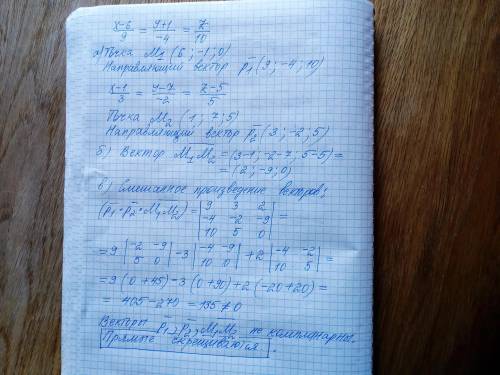 (x-6)/9 = (y+1)/-4 = z/10
а) Точка M₁ (6; -1; 0)
Направляющий вектор p̄₁ (9; -4; 10)
(x-1)/3 = (y-7)/-2 = (z-5)/5
Точка M₂ (1; 7; 5)
Направляющий вектор p̄₂ (3; -2; 5)
б) Вектор M₁M₂ = (3-1; -2-7; 5-5) =
= (2; -9; 0)
в) Смешанное произведение векторов:
(p̄₁ · p̄₂ · M₁M₂) = |9 3 2|
|-4 -2 -9| =
|10 5 0|
= 9 |-2 -9; 5 0| - 3 |-4 -9; 10 0| + 2 |-4 -2; 10 5| =
= 9 (0 + 45) - 3 (0 + 90) + 2 (-20 + 20) =
= 405 - 270 = 135 ≠ 0
Векторы p̄₁, p̄₂, M₁M₂ не компланарны.
Прямые скрещиваются.